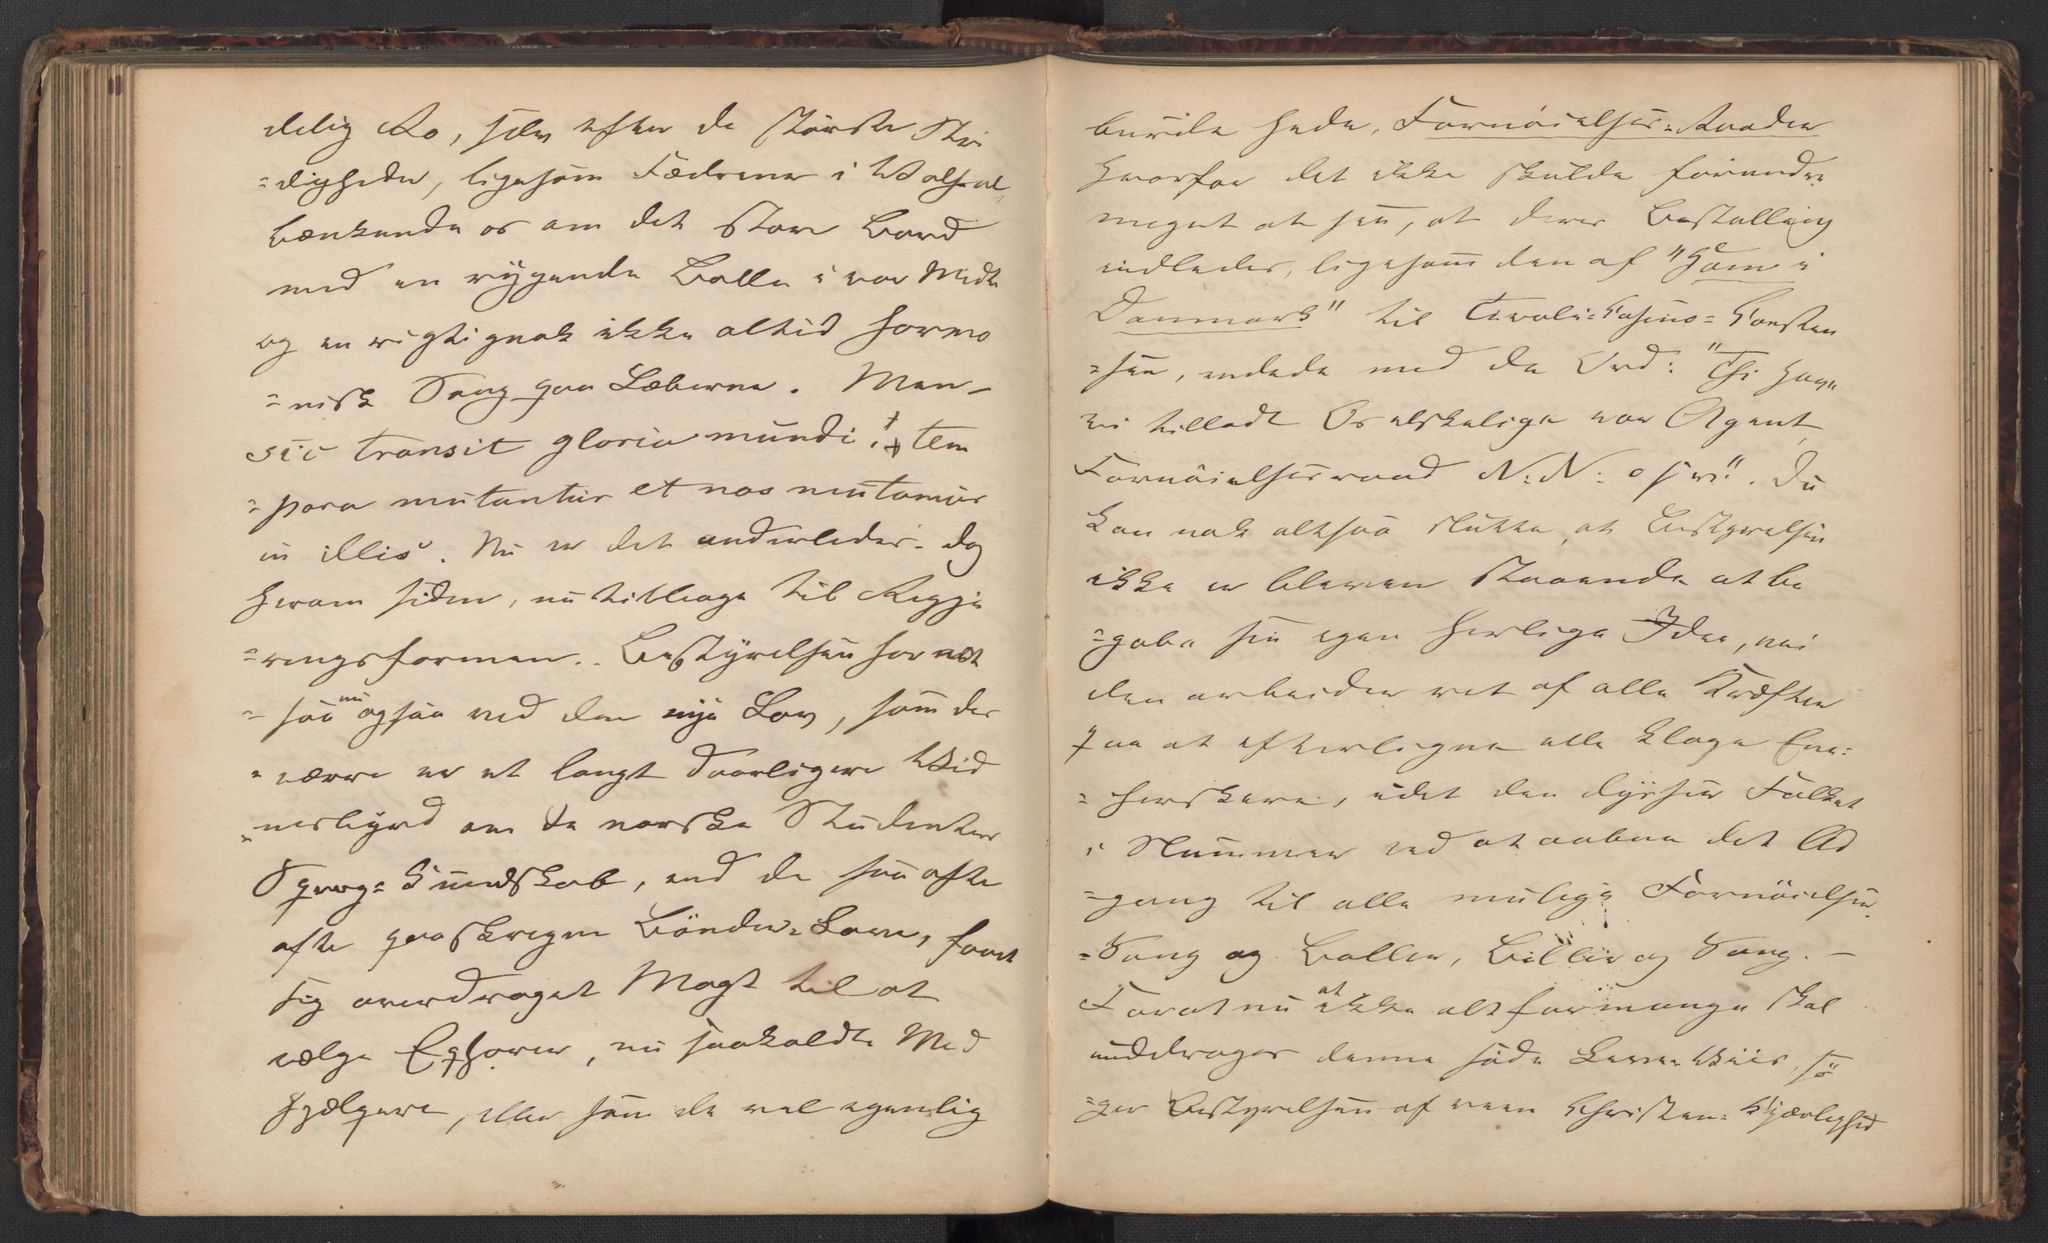 delig Ro, selv efter de störste Stri
=digheder, ligesom Fædrene i Walhal,
bænkende os om det store Bord
med en rygende Bolle i vor Midte
og en rigtignok ikke altid harmo
=nisk Sang paa Læberne. Men –
sic transit gloria mundi! tem
=pora mutantur et nos mutamur
in illis. Nu er det anderledes. Dog
herom siden, nu tilbage til Regje
=ringsformen. Bestyrelsen har alt
=saa nu ogsaa ved den nye Lov, som des
=værre er et langt daarligere Vid
=nesbyrd om de norske Studenters
Sprog=Kundskab, end de saa ofte
ofte paaskregne Bönder=Love, faaet
sig overdraget Magt til at
vælge Ephorer, nu saakaldte Med
hjælpere, eller som de vel egentlig
burde hede, Fornöielses=Raader
hvorfor det ikke skulde forundre
meget at see, at deres Bestalling
indledes, ligesom den af "Höm i
Danmark" til Tivoli=Casino= Carsten
=sen, endte med de Ord: "Thi hav"
vi tilladt Os elskelige vor Agent
Fornöielsesraad N: N: osv". Du
kan nok altsaa slutte, at Bestyrelsen
ikke er bleven staaende at be
=gabe sin egen herlige Idee, nei
den arbeider ret af alle Kræfter
paa at efterligne alle kloge Ene=
=herskere, idet den dysser Folket
i Slummer ved at aabne det Ad
=gang til alle mulige Fornöielser
=Sang og Boller, Biller og Sang. –
Forat nu at ikke altformange skal
unddrages denne söde Leve=Viis, sö
=ger Bestyrelsen af reen Christen=Kjærlighed